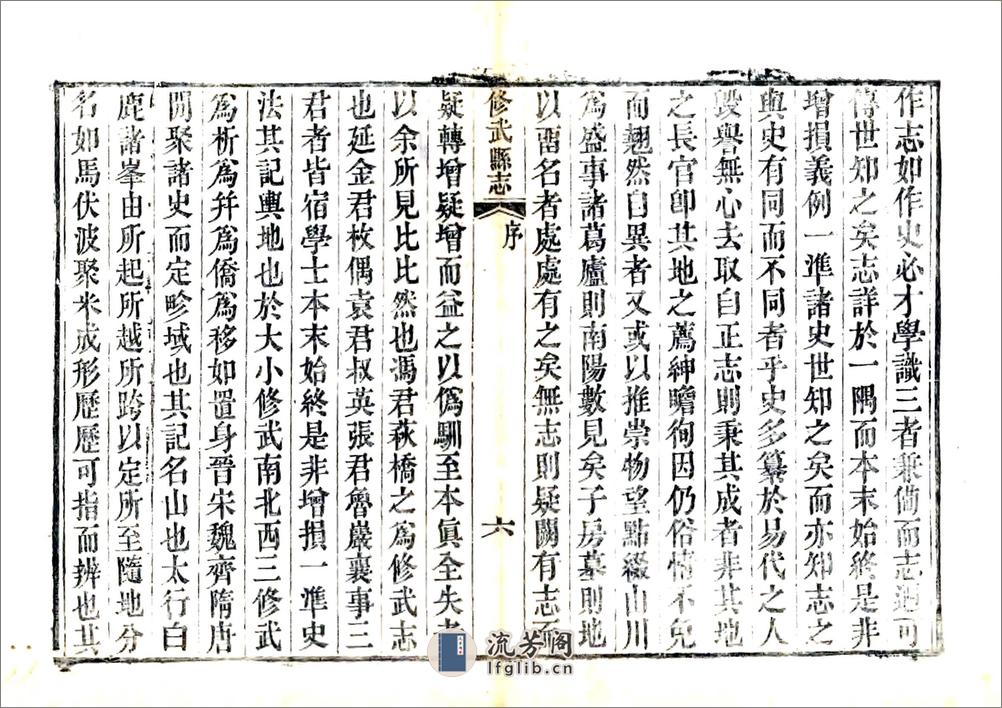 作志如作史必才學識三者兼備而志迺可
傳世知之矣志詳於一隅而本末始終是非
增損義例一準諸史世知之矣而亦知志之
與史有同而不同者乎史多纂於易代之人
毀譽無心去取自正志則秉其成者非其地
之長官卽其地之薦紳瞻徇因仍俗情不免
而翹然自異者又或以推崇物望點綴山川
為盛事諸葛廬則南陽數見矣子房墓則地
以畱名者處處有之矣無志則疑闕有志
修武縣志
序
六
疑轉增疑增而益之以偽馴至本眞全失者
以余所見比比然也馮君萩橋之為修武志
也延金君枚偶袁君叔英張君魯巖襄事三
君者皆宿學士本末始終是非增損一準史
法其記輿地也於大小修武南北西三修武
為析為幷為僑為移如置身晉宋魏齊隋唐
間聚諸史而定畛域也其記名山也太行白
鹿諸峯由所起所越所跨以定所至隨地分
名如馬伏波聚米成形歷歷可指而辨也其
流芳阁
lfglib.cn